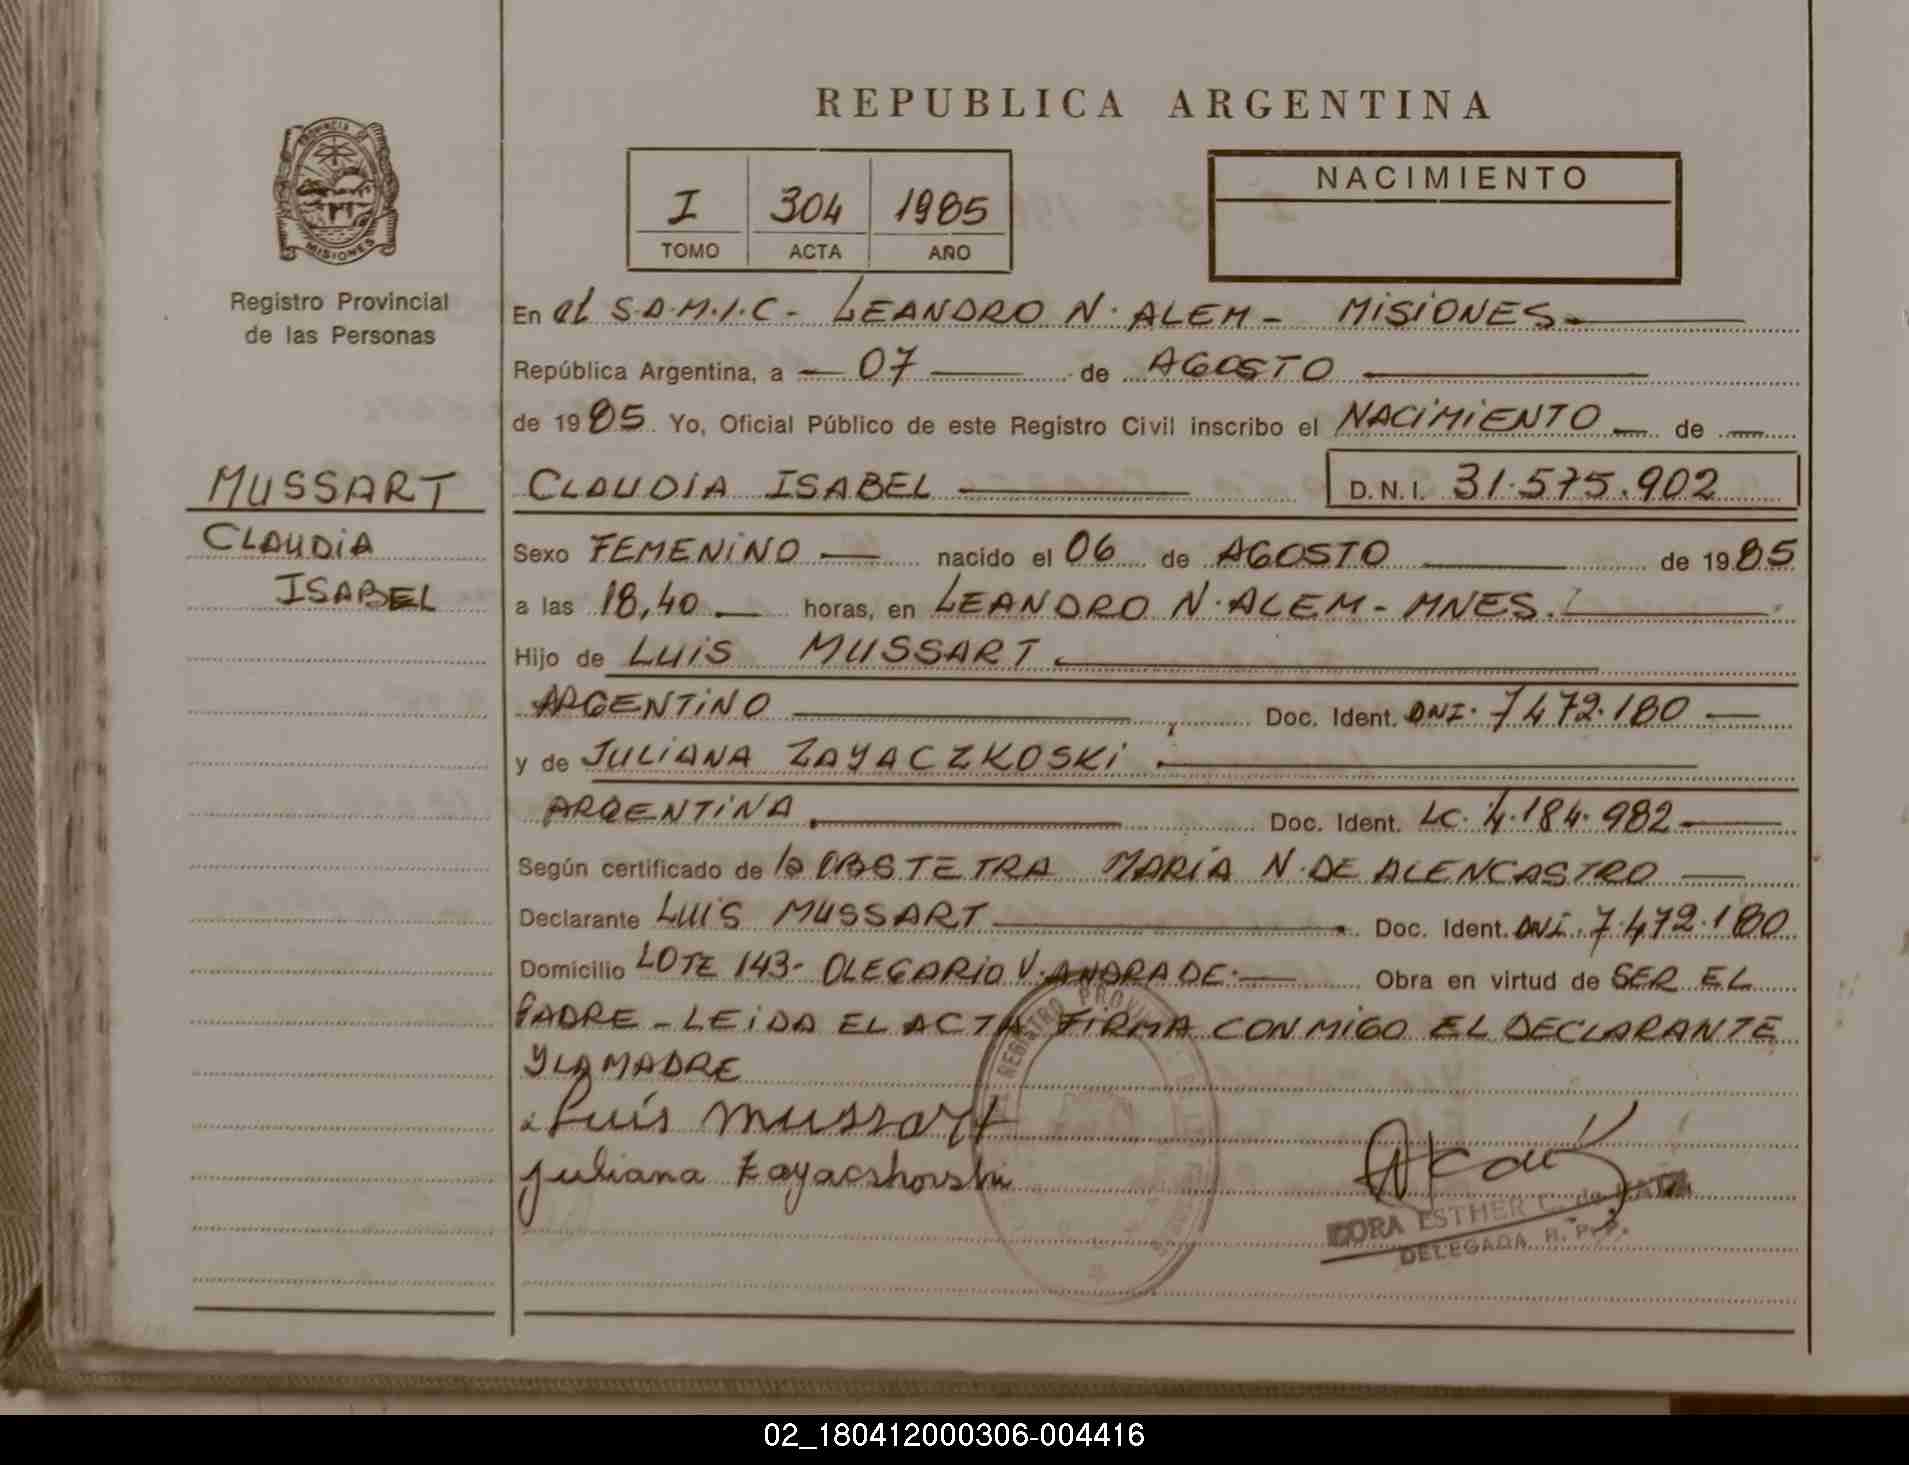 REPUBLICA ARGENTINA
PROVINCIA DE MISIONES
Registro Provincial
de las Personas
I 304 1985
TOMO ACTA AÑO
NACIMIENTO
En el S.A.M.I.C- LEANDRO N. ALEM - MISIONES-
República Argentina, a 07 de AGOSTO
de 1985. Yo, Oficial Público de este Registro Civil inscribo el NACIMIENTO de
MUSSART
CLAUDIA
ISABEL
CLAUDIA ISABEL D.N.I. 31.575.902
Sexo FEMENINO nacido el 06 de AGOSTO de 1985
a las 18,40 horas, en LEANDRO N. ALEM - MNES.
Hijo de LUIS MUSSART
ARGENTINO Doc. Ident. DNI. 7472.180
y de JULIANA ZAYACZKOSKI
ARGENTINA Doc. Ident. LC. 4.184.982
Según certificado de la OBSTETRA MARÍA N. DE ALENCASTRO
Declarante LUIS MUSSART Doc. Ident. DNI. 7.472.180
Domicilio LOTE 143- OLEGARIO V. ANDRADE.- Obra en virtud de SER EL
PADRE - LEIDA EL ACTA FIRMA CONMIGO EL DECLARANTE
Y LA MADRE
Luis Mussart
Juliana
ESTHER C. de
DELEGADA R. P. P.
02_180412000306-004416